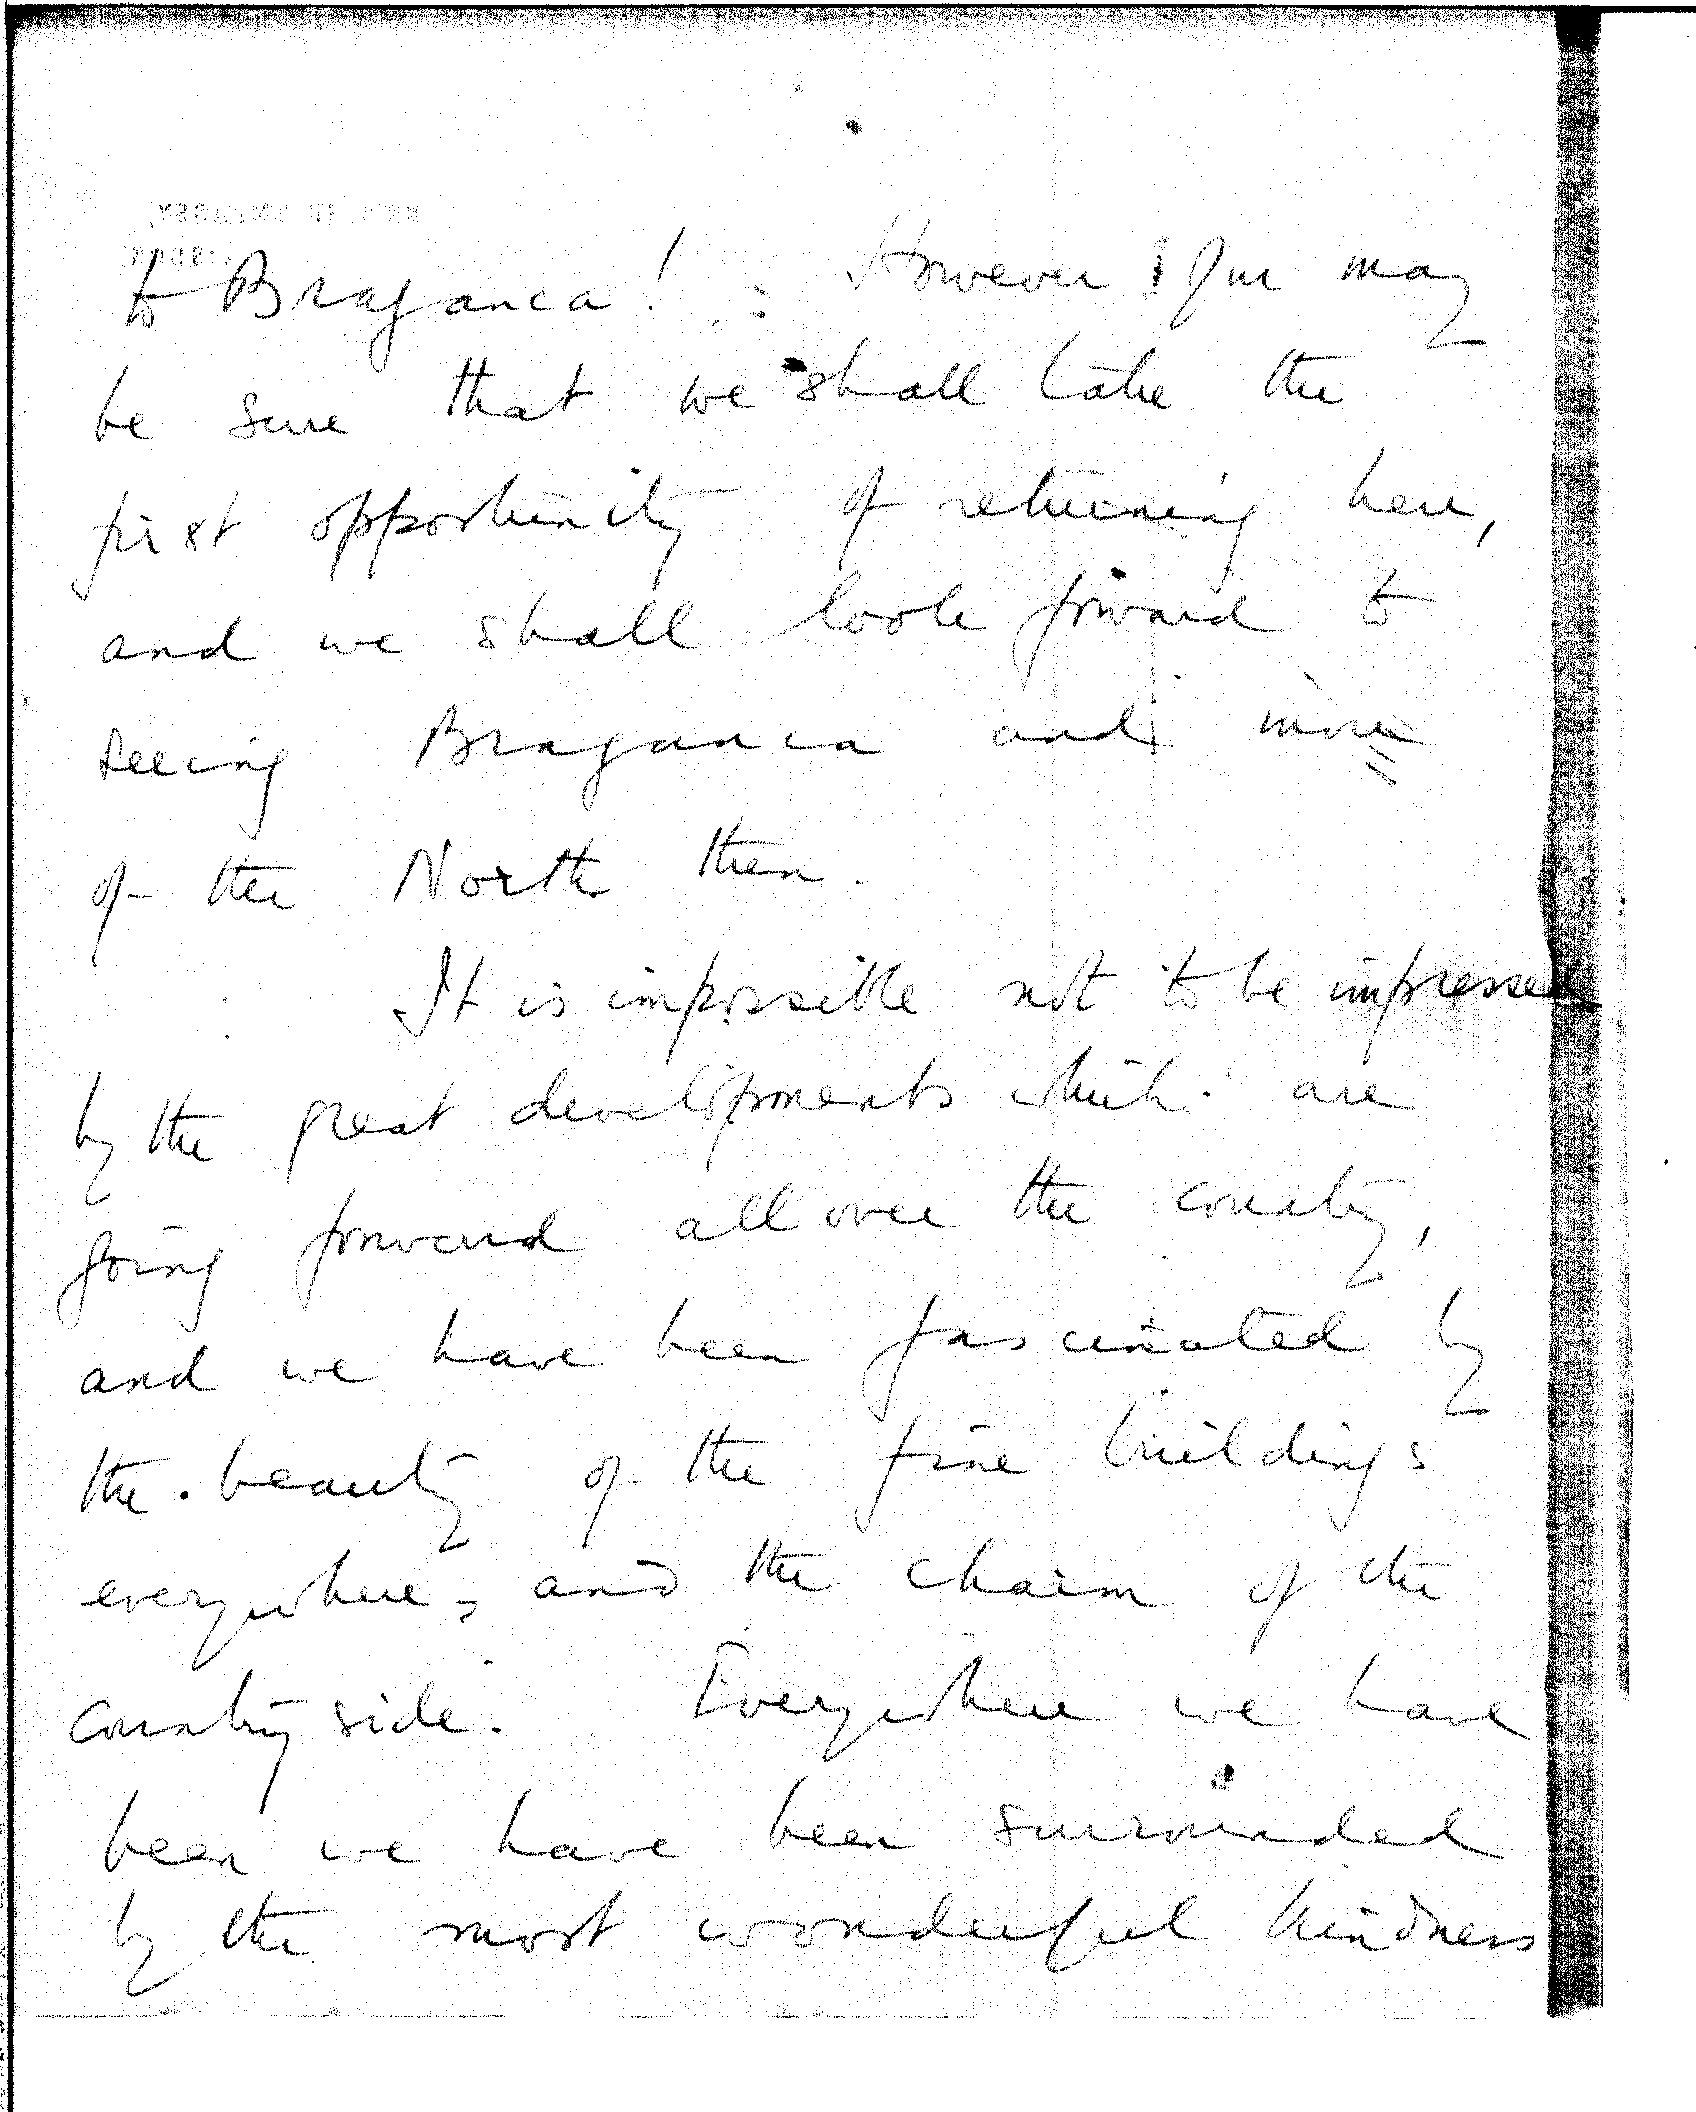 to Braganca! However you may
be sure that we shall take the
first opportunity of returning here,
and we shall look forward to
seeing Braganca and more
of the North then.
It is impossible not to be impressed
by the great developments which are
going forward all over the country,
and we have been fascinated by
the beauty of the fine buildings
everywhere, and the charm of the
country side. Everywhere we have
been we have been surrounded
by the most wonderful kindness